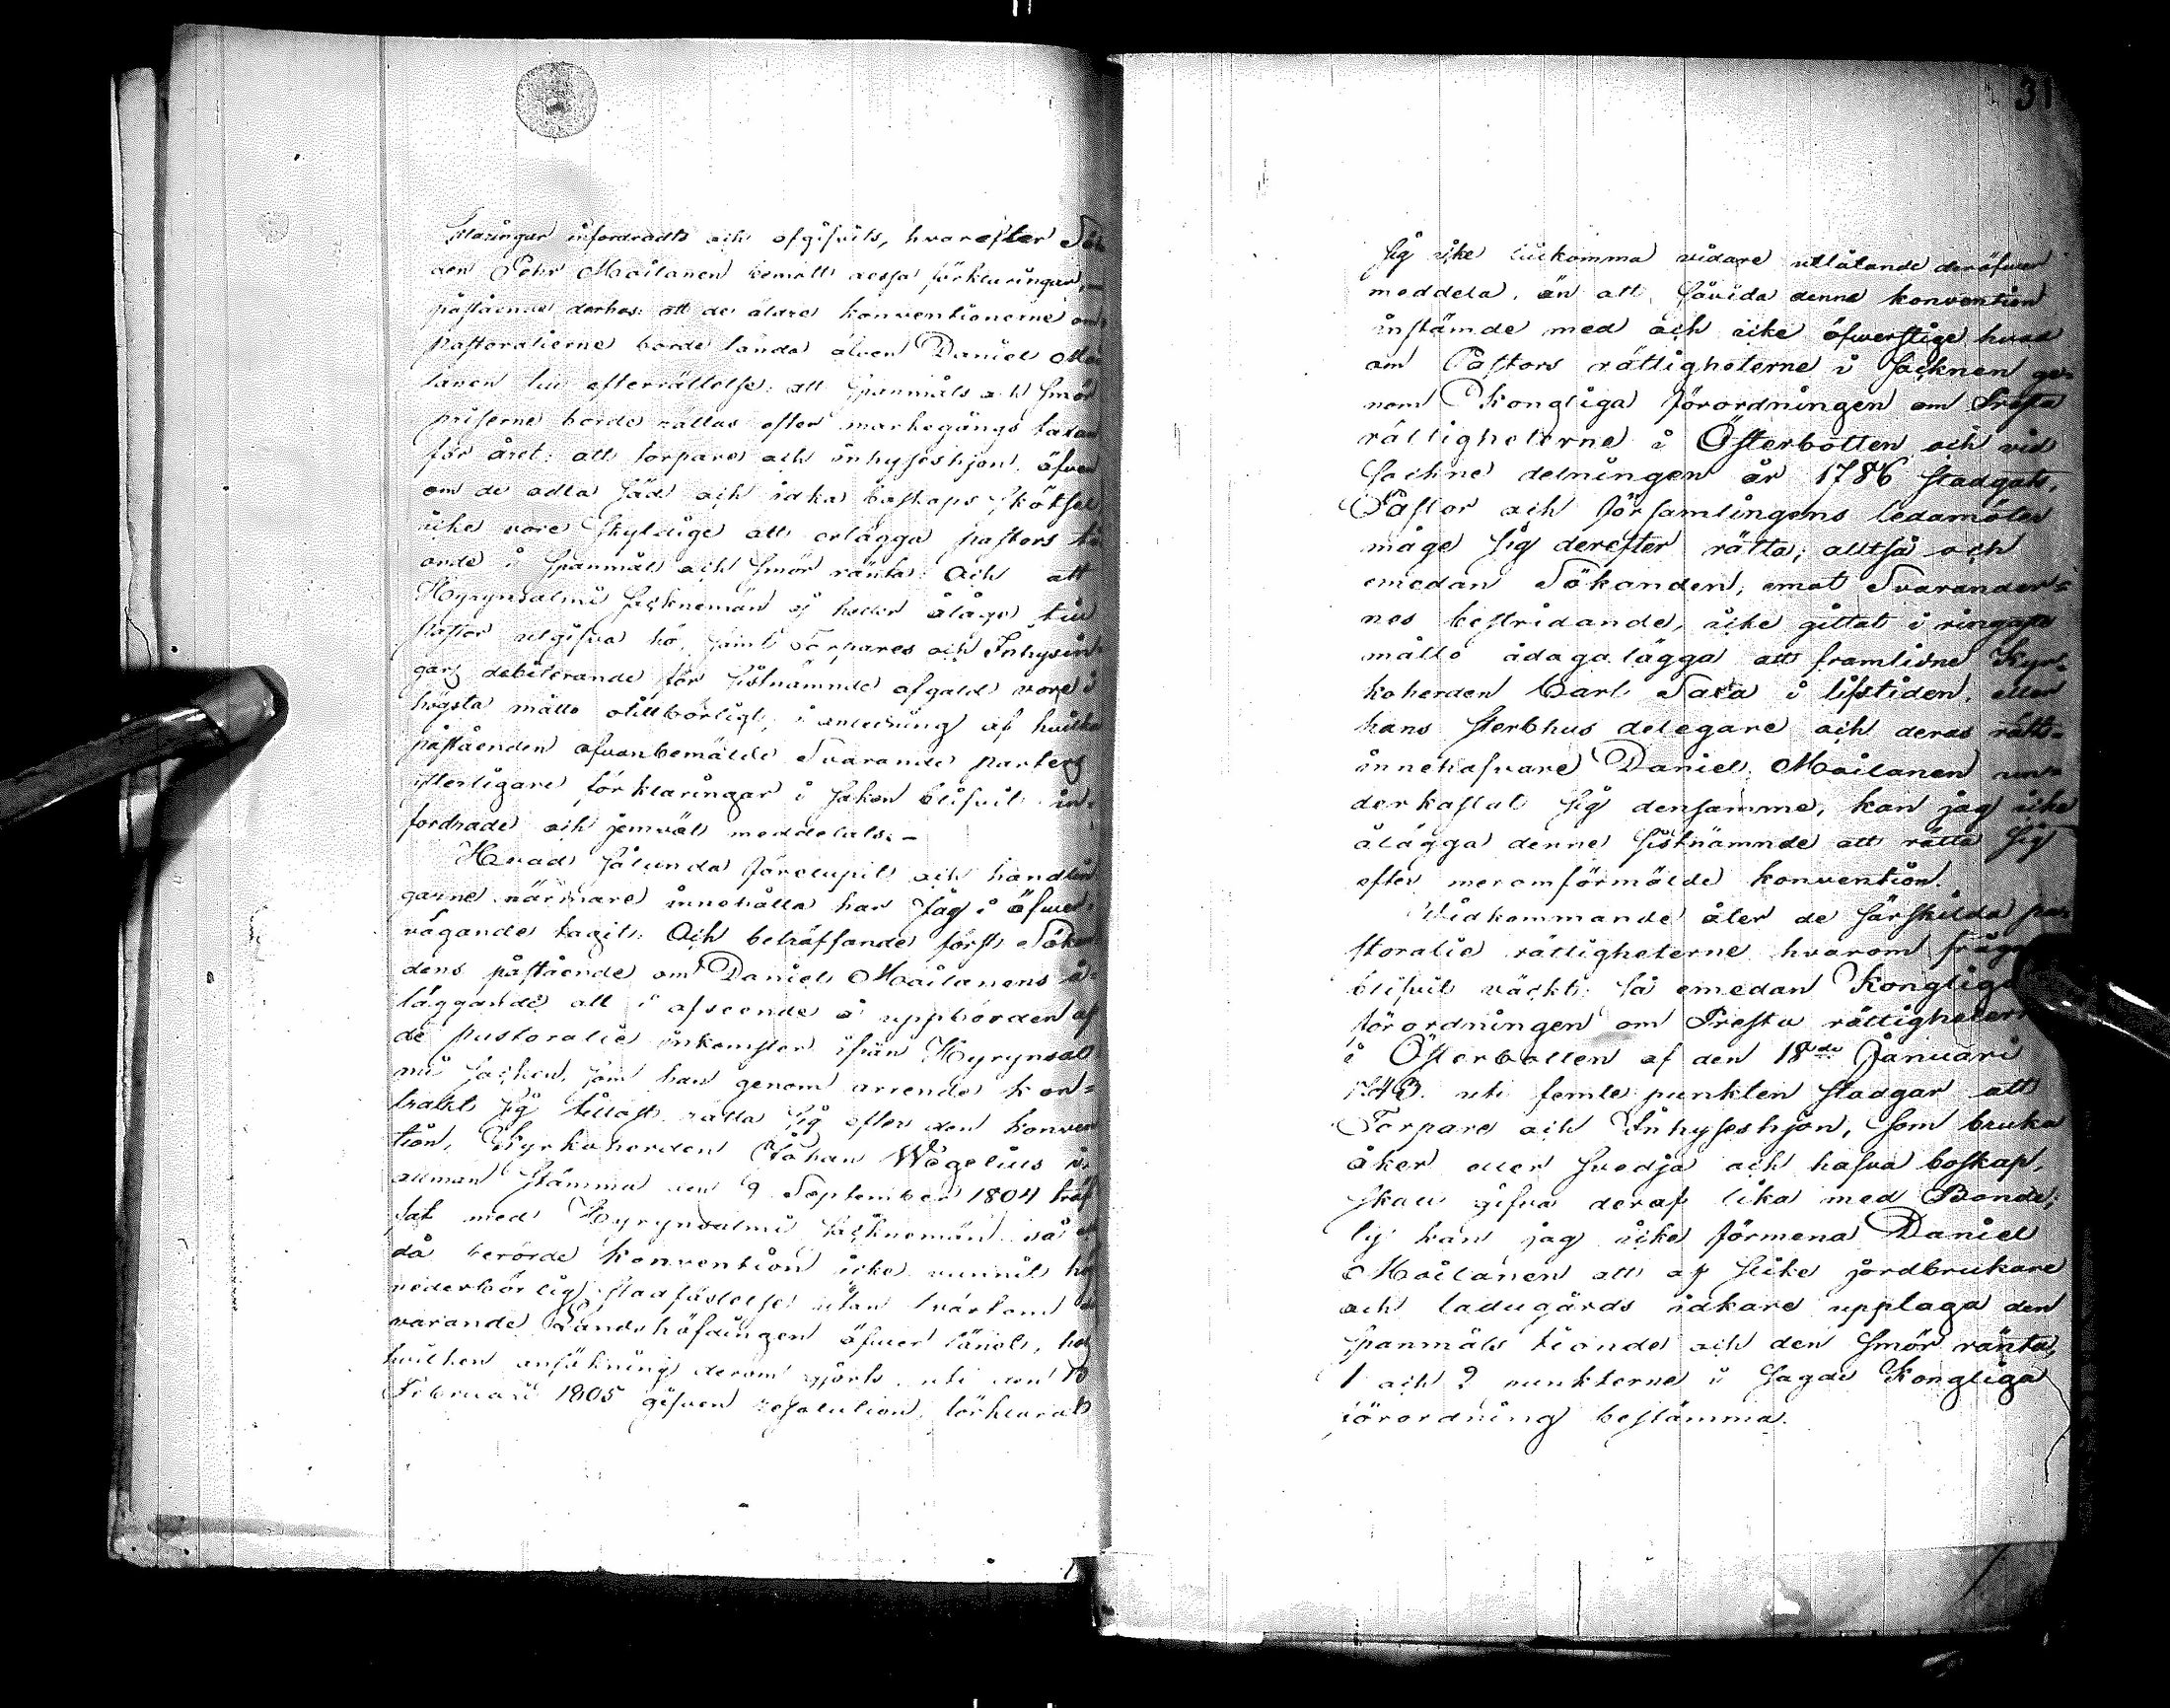 klaringar infordradts och afgifvits, hvarefter Sökan
den Pehr Moilanen bemött dessa förklaringar,
påstående derhos: att de äldre konventionerne om
pastoralierne borde lända äfven Daniel Moi
lanen till efterrättelse: att Spanmåls och Smör
priserne borde rättas efter markegångs taxan
för året: att torpare och inhyseshjon, äfven
om de odla säd och idka boskaps skötsel
icke vore skyldige att erlägga pastors ti
onde i Spanmål och Smör ränta: Och att
Hyrynsalmi Socknemän ej heller ålåge till
pastor utgifva hö, samt Torpares och Inhysin
gars debiterande för sistnämnde afgald vore i
högsta måtto otillbörligt; i anledning af hvilka
påståenden ofvanbemälde Svarande parters
ytterligare förklaringar i saken blifvit in-
fordrade och jemväl meddelats.-
Hvad sålunda förelupit och handlin
garne närmare innehålla har Jag i öfver-
vägande tagit: Och beträffande först Sökan
dens påstående om Daniel Moilanens å-
läggande att i afseende å uppbörden af
de pastoralie inkomster ifrån Hyrynsal
mi Socken, som han genom arrende kon-
trakt sig tillöst rätta sig efter den konven
tion, Kyrkoherden Johan Wegelius i
allmän stämma den 9 September 1804 träf
fat med Hyrynsalmi Socknemän så
då berörde konvention icke vunnit
vederbörlig stadfästelse utan tvärtom
varande Landshöfdingen öfver länet, hos
hvilken ansökning derom gjorts uti den
Februari 1805 gifven resolution, förklarat
31
sig icke tillkomma vidare utlåtande deröfver
meddela, än att, såvida denne konvention
instämde med och icke öfverstige hvad
om Pastors rättigheterne i Socknen ge-
nom Kongliga förordningen om Presta
rättigheterne i Österbotten och vid
Sockne delningen år 1786 stadgats,
Pastor och församlingens ledamöter
måge sig derefter rätta; alltså och
emedan Sökanden, emot Svarander-
nes bestridande, icke gittat i ringaste
måtto ådagalägga att framlidne Kyr-
koherden Carl Saxa i lifstiden, eller
hans sterbhus delegare och deras rätts-
innehafvare Daniel Moilanen un-
derkastat sig densamma, kan jag icke
ålägga denne sistnämnde att rätta sig
efter meromförmälde konvention.
Vidkommande åter de särskilda pa-
storalie rättigheterne hvarom fråga
blifvit väckt; så emedan Kongliga
förordningen om Presta rättigheterne
i Österbotten af den 18de Januari
1743. uti femte punkten stadgar att
Torpare och Inhyseshjon, som bruka
åker eller svedja och hafva boskap,
skall gifva deraf lika med Bonde;
ty kan jag icke förmena Daniel
Moilanen att af slike jordbrukare
och ladugårds idkare upptaga den
Spanmåls tionde och den Smör ränta,
1 och 2 punkterne i sagde Kongliga
förordning bestämma.